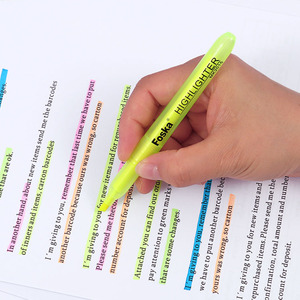 that are ok.
In another hand, above new items send me the barcodes
of inners and items, carton barcodes
I'm giving to you, remember that last time we have to put
another barcode because ours was wrong, so carton
I'm giving to you for new items and for repurchased items.
Please send me the
number account for deposit.
Attached you can find our
pay attention to green marks
that are some changes.
I'm giving to you, remember that
we have to put another barcode
yours was wrong, so carton
I'm giving to you for new items and
repurchased items. Please send me the
confirmation, total amount and number
account for deposit.
Foska HIGHLIGHTER